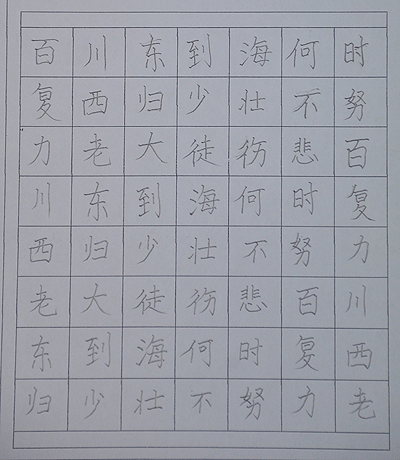 百川东到海何时
复西归少壮不努
力老大徒伤悲百
川东到海何时复
西归少壮不努力
老大徒伤悲百川
东到海何时复西
归少壮不努力老